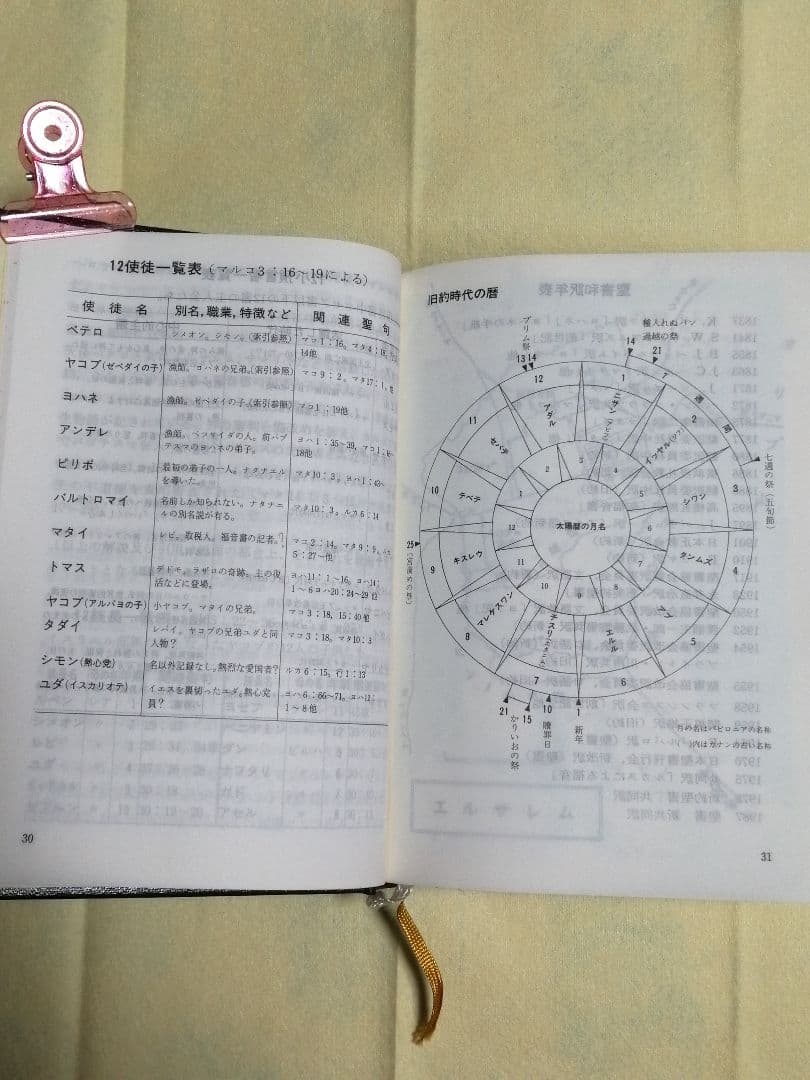 12使徒一覧表(マルコ3：16〜19による)
使徒名 別名,職業,特徴など 関連聖句
ペテロ シメオン。シモン。(索引参照) マコ1：16。マタ4：18。
14他
ヤコブ(ゼベダイの子) 漁師。ヨハネの兄弟。(索引参照) マコ9：2。マタ17：1。他
ヨハネ 漁師。ゼベダイの子。(索引参照) マコ1：19他
アンデレ 漁師。ベツサイダの人。前バプ ヨハ1：35〜39。マコ1：
テスマのヨハネの弟子。 18他
ピリポ 最初の弟子の一人。ナタナエル マタ10：3。ヨハ1：43〜
を導いた。
バルトロマイ 名前しか知られない。ナタナエ マタ10：3。ルカ6：14
ルの別名説が有る。
マタイ レビ。取税人。福音書の記者。? マコ2：14。マタ9：9。ルカ
5：27〜他
トマス デドモ。ラザロの奇跡。主の復 ヨハ11：1〜16。ヨハ14：
活などに登場。 1〜6ヨハ20：24〜29 他
ヤコブ(アルパヨの子) 小ヤコブ。マタイの兄弟。 マコ3：18。15：40他
タダイ レバイ。ヤコブの兄弟ユダと同 マコ3：18。マタ10：3
人物?
シモン(熱心党) 名以外記録なし。熱烈な愛国者? ルカ6：15。行1：13
ユダ(イスカリオテ) イエスを裏切ったユダ。熱心党 ヨハ6：66〜71。ヨハ12：
員? 1〜8他
30
旧約時代の暦
プリム祭
13 14
種入れぬパン
過越の祭
14
21
7週間
七週の祭(五旬節)
12
1
2
3
4
5
6
7
8
9
10
11
ニサン(アビブ)
イッヤル(ジブ)
シワン
タンムズ
アブ
エルル
チスリ(エタニム)
マレケスワン
キスレウ
テベテ
セバテ
アダル
太陽暦の月名
3
4
5
6
7
8
9
10
11
12
1
2
25
(宮潔めの祭)
21
15
かりいおの祭
10
贖罪日
1
新年
月の名はバビロニアの名称
( )内はカナンの古い名称
31